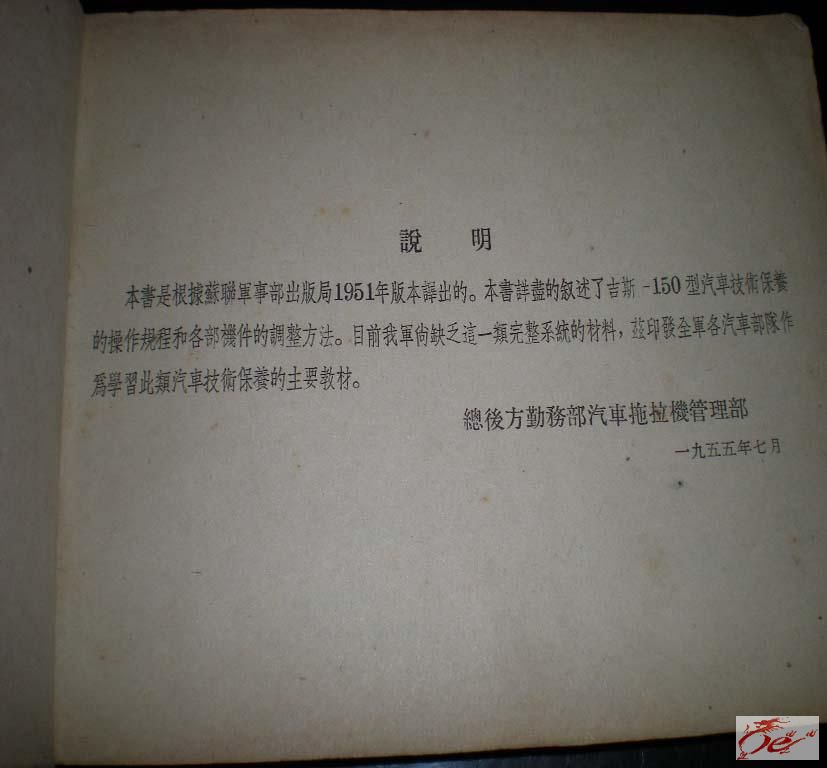 說 明
本書是根據蘇聯軍事部出版局1951年版本譯出的。本書詳盡的叙述了吉斯-150型汽車技術保養
的操作規程和各部機件的調整方法。目前我軍尙缺乏這一類完整系統的材料，茲印發全軍各汽車部隊作
爲學習此類汽車技術保養的主要敎材。
總後方勤務部汽車拖拉機管理部
一九五五年七月